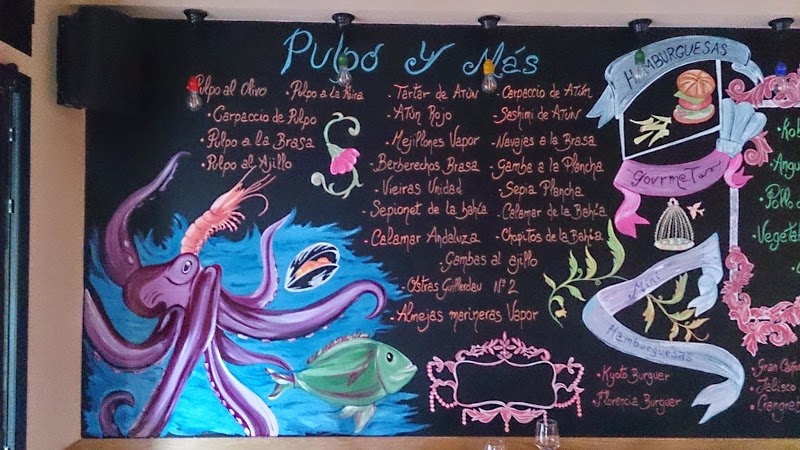 Pulpo y Más
Pulpo al Olivo
• Pulpo a la Feira
• Carpaccio de Pulpo
• Pulpo a la Brasa
• Pulpo al Ajillo
• Tartar de Atún
• Atún Rojo
• Mejillones Vapor
• Berberechos Brasa
• Vieiras Unidad
• Sepionet de la bahía
• Calamar Andaluza
Gambas al ajillo
• Ostras Guillerdau Nº2
• Almejas marineras Vapor
• Carpaccio de Atún
• Sashimi de Atún
• Navajas a la Brasa
• Gamba a la Plancha
• Sepia Plancha
• Calamar de la Bahía
• Chopitos de la Bahía
HAMBURGUESAS
gourmet
Mini
Hamburguesas
• Kyoto Burguer
• Florencia Burguer
• Pollo
• Vegetal
• Gran
• Jalisco